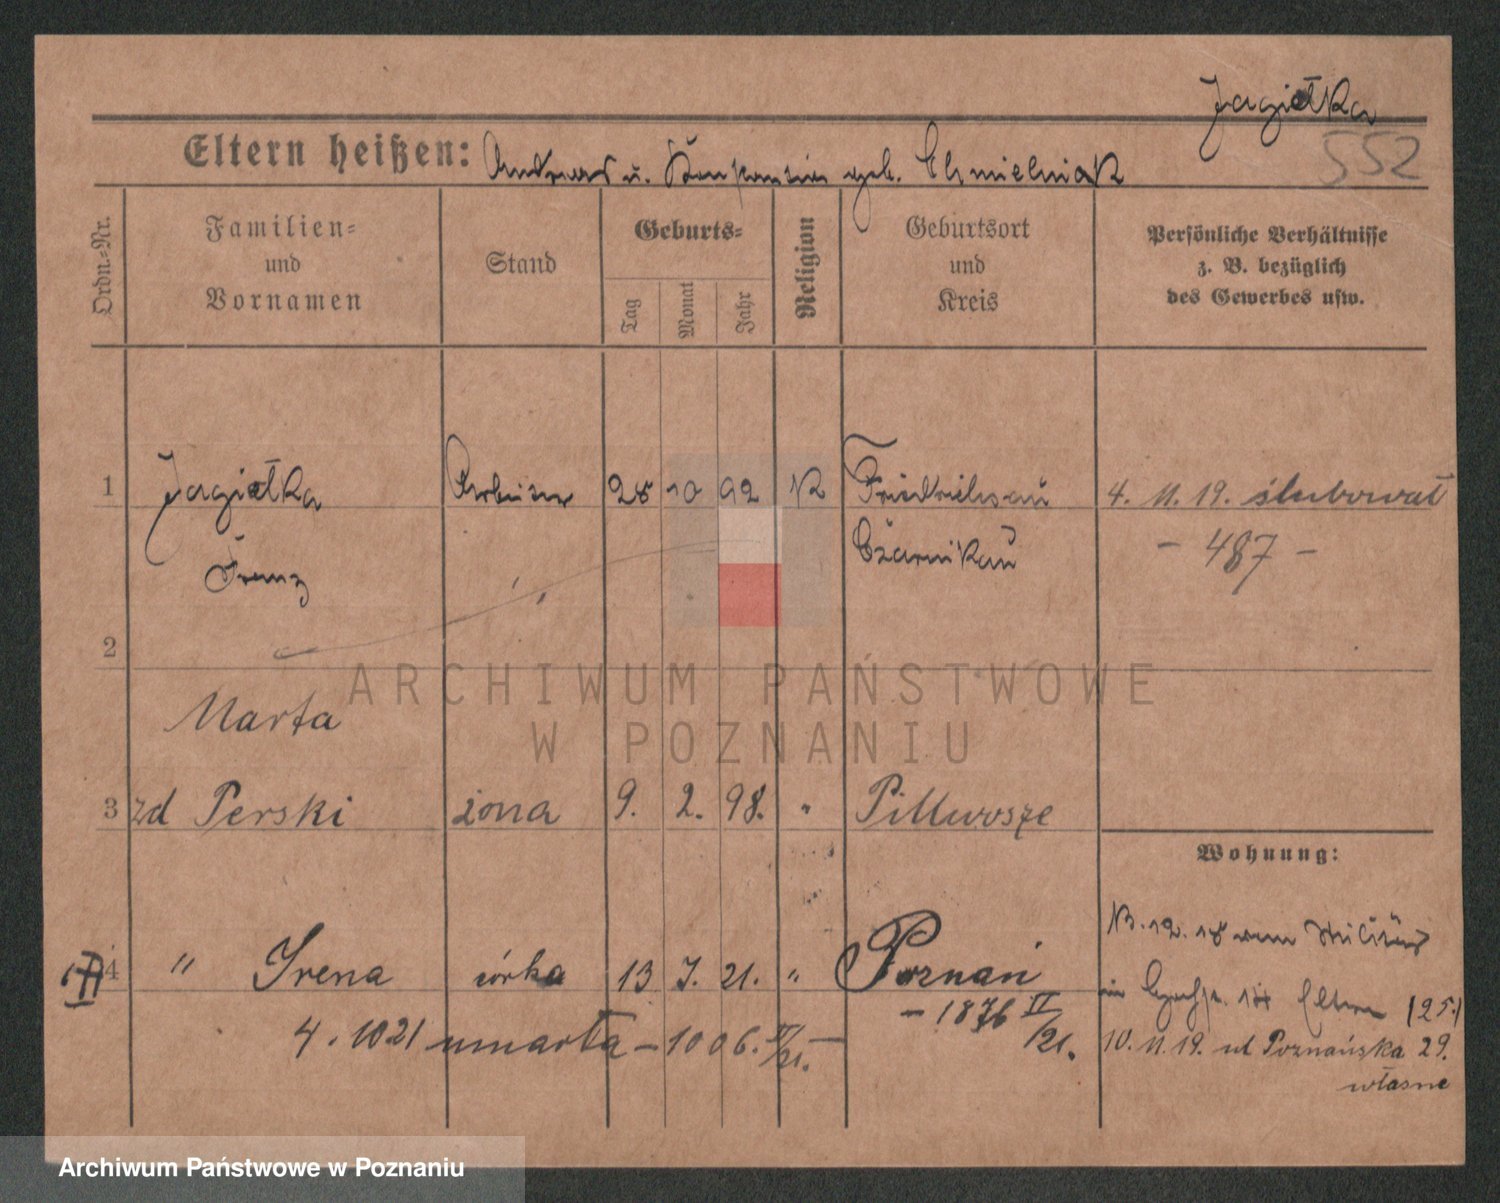 Jagiełka
552
Eltern heißen: Andreas u. Konstanzia geb. Chmielniak
Ordn.-Nr.
Familien-
und
Vornamen
Stand
Geburts-
Tag
Monat
Jahr
Religion
Geburtsort
und
Kreis
Persönliche Verhältnisse
z. B. bezüglich
des Gewerbes usw.
1 Jagiełka Arbeiter 28 10 92 K Friedrichsau 4. 11. 19. ślubował
Franz Czarnikau - 487 -
2
Marta
3 zd Perski żona 9. 2. 98. " 
Wohnung:
4 " Irena córka 13 7. 21. " Poznań
4. 10 21 umarła - 1006. II/21. - 1876 II/21.
12. 18 vom Militär
Eltern (25.)
10. 11. 19. ul Poznańska 29.
własne
ARCHIWUM PAŃSTWOWE
W POZNANIU
Archiwum Państwowe w Poznaniu